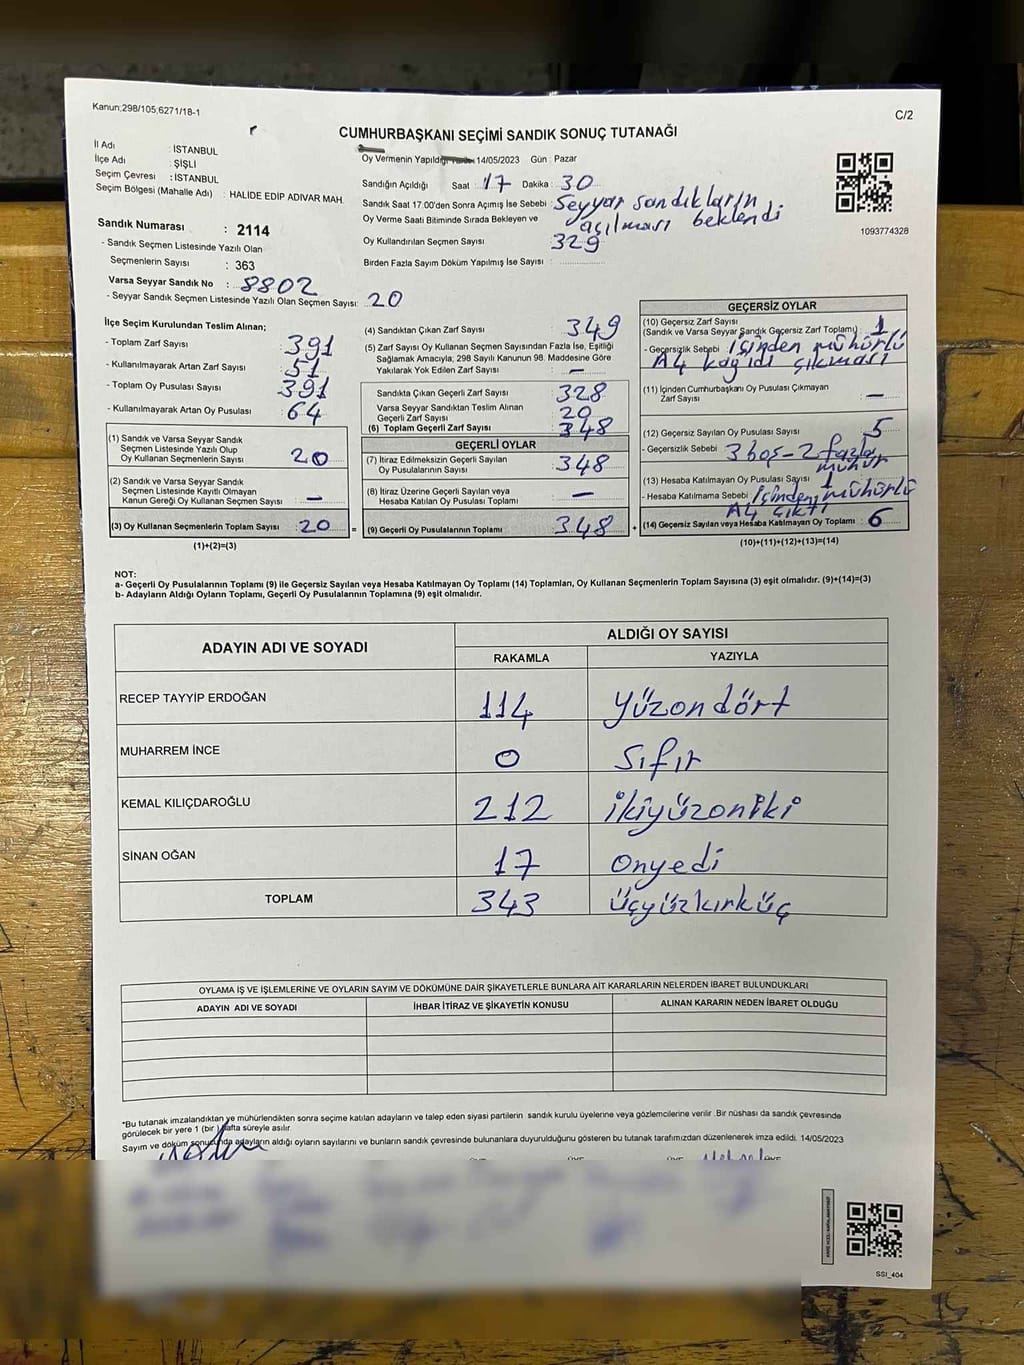 Kanun:298/105;6271/18-1
C/2
CUMHURBAŞKANI SEÇİMİ SANDIK SONUÇ TUTANAĞI
İl Adı : İSTANBUL
İlçe Adı : ŞİŞLİ
Seçim Çevresi : İSTANBUL
Seçim Bölgesi (Mahalle Adı) : HALİDE EDİP ADIVAR MAH.
Sandık Numarası : 2114
- Sandık Seçmen Listesinde Yazılı Olan
Seçmenlerin Sayısı : 363
Varsa Seyyar Sandık No : 8802
- Seyyar Sandık Seçmen Listesinde Yazılı Olan Seçmen Sayısı: 20
Oy Vermenin Yapıldığı 14/05/2023 Gün : Pazar
Sandığın Açıldığı Saat 17 Dakika : 30
Sandık Saat 17.00'den Sonra Açımış İse Sebebi : Seyyar sandıkların
açılması beklendi
Oy Verme Saati Bitiminde Sırada Bekleyen ve
Oy Kullandırılan Seçmen Sayısı 329
Birden Fazla Sayım Döküm Yapılmış İse Sayısı :
1093774328
İlçe Seçim Kurulundan Teslim Alınan;
- Toplam Zarf Sayısı : 391
- Kullanılmayarak Artan Zarf Sayısı : 51
- Toplam Oy Pusulası Sayısı : 391
- Kullanılmayarak Artan Oy Pusulası : 64
(1) Sandık ve Varsa Seyyar Sandık
Seçmen Listesinde Yazılı Olup
Oy Kullanan Seçmenlerin Sayısı : 20
(2) Sandık ve Varsa Seyyar Sandık
Seçmen Listesinde Kayıtlı Olmayan
Kanun Gereği Oy Kullanan Seçmen Sayısı : –
(3) Oy Kullanan Seçmenlerin Toplam Sayısı : 20
(1)+(2)=(3)
(4) Sandıktan Çıkan Zarf Sayısı : 349
(5) Zarf Sayısı Oy Kullanan Seçmen Sayısından Fazla İse, Eşitliği
Sağlamak Amacıyla; 298 Sayılı Kanunun 98. Maddesine Göre
Yakılarak Yok Edilen Zarf Sayısı : –
Sandıkta Çıkan Geçerli Zarf Sayısı : 328
Varsa Seyyar Sandıktan Teslim Alınan
Geçerli Zarf Sayısı : 20
(6) Toplam Geçerli Zarf Sayısı : 348
GEÇERLİ OYLAR
(7) İtiraz Edilmeksizin Geçerli Sayılan
Oy Pusulalarının Sayısı : 348
(8) İtiraz Üzerine Geçerli Sayılan veya
Hesaba Katılan Oy Pusulası Toplamı : –
= (9) Geçerli Oy Pusulalarının Toplamı : 348 +
GEÇERSİZ OYLAR
(10) Geçersiz Zarf Sayısı
(Sandık ve Varsa Seyyar Sandık Geçersiz Zarf Toplamı) : 1
- Geçersizlik Sebebi : İçinden mühürlü
A4 kağıdı çıkması
(11) İçinden Cumhurbaşkanı Oy Pusulası Çıkmayan
Zarf Sayısı : –
(12) Geçersiz Sayılan Oy Pusulası Sayısı : 5
- Geçersizlik Sebebi : 3 boş - 2 fazla
mühür
(13) Hesaba Katılmayan Oy Pusulası Sayısı : 1
- Hesaba Katılmama Sebebi : İçinden mühürlü
A4 çıktı
(14) Geçersiz Sayılan veya Hesaba Katılmayan Oy Toplamı : 6
(10)+(11)+(12)+(13)=(14)
NOT:
a- Geçerli Oy Pusulalarının Toplamı (9) ile Geçersiz Sayılan veya Hesaba Katılmayan Oy Toplamı (14) Toplamları, Oy Kullanan Seçmenlerin Toplam Sayısına (3) eşit olmalıdır. (9)+(14)=(3)
b- Adayların Aldığı Oyların Toplamı, Geçerli Oy Pusulalarının Toplamına (9) eşit olmalıdır.
ADAYIN ADI VE SOYADI ALDIĞI OY SAYISI
RAKAMLA YAZIYLA
RECEP TAYYİP ERDOĞAN 114 yüzondört
MUHARREM İNCE 0 Sıfır
KEMAL KILIÇDAROĞLU 212 ikiyüzoniki
SİNAN OĞAN 17 Onyedi
TOPLAM 343 üçyüzkırküç
OYLAMA İŞ VE İŞLEMLERİNE VE OYLARIN SAYIM VE DÖKÜMÜNE DAİR ŞİKAYETLERLE BUNLARA AİT KARARLARIN NELERDEN İBARET BULUNDUKLARI
ADAYIN ADI VE SOYADI İHBAR İTİRAZ VE ŞİKAYETİN KONUSU ALINAN KARARIN NEDEN İBARET OLDUĞU
*Bu tutanak imzalandıktan ve mühürlendikten sonra seçime katılan adayların ve talep eden siyasi partilerin sandık kurulu üyelerine veya gözlemcilerine verilir. Bir nüshası da sandık çevresinde
görülecek bir yere 1 (bir) hafta süreyle asılır.
Sayım ve döküm sonucunda adayların aldığı oyların sayılarını ve bunların sandık çevresinde bulunanlara duyurulduğunu gösteren bu tutanak tarafımızdan düzenlenerek imza edildi. 14/05/2023
SSİ_404